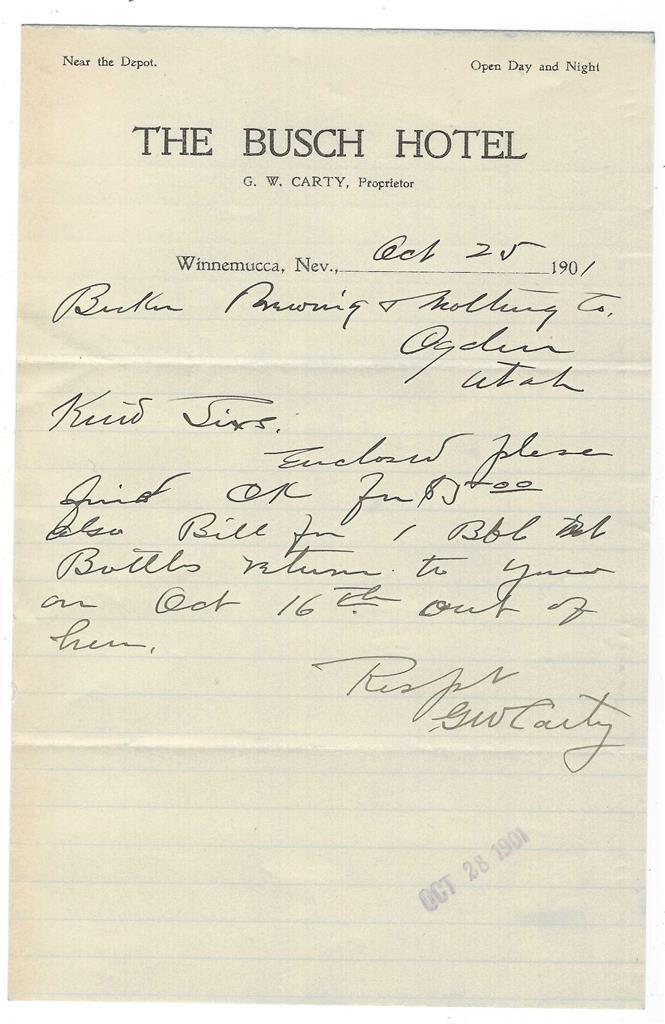 Near the Depot. Open Day and Night
THE BUSCH HOTEL
G. W. CARTY, Proprietor
Winnemucca, Nev., Oct 25 1901
Becker Brewing & Malting Co.
Ogden
Utah
Kind Sirs.
Enclosed please
find CK for $5 00
also Bill for 1 Bbl
Bottles return to you
on Oct 16th out of
here.
Respt
GW Carty
OCT 28 1901